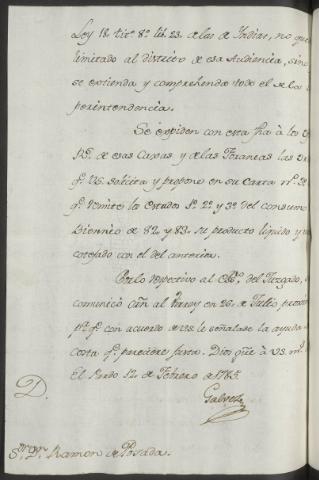 Ley 18. tit.º 8.º lib. 23. de las de Indias, no que
limitado al distrito de esa Audiencia, sino
se extienda y comprehenda todo el de la
perintendencia.
Se expiden con esta fha à los
de esas Caxas y de las Foraneas las
q.e V.S. solicita y propone en su carta n.º
q.e remite los estados 1.º 2.º y 3.º del consumo
Biennio de 82, y 83. su producto liquido y
cotejado con el del anterior.
Por lo respectivo al del Juzgado,
comunicó al Virrey en 26. de Julio,
p.a q.e con acuerdo de V.S. le señalase la ayuda
costa q.e pareciere justa. Dios gũe à V.S. m.s
El Pardo 12. de Febrero de 1785.
Galvez
D.
S.or D.n Ramon de Posada.